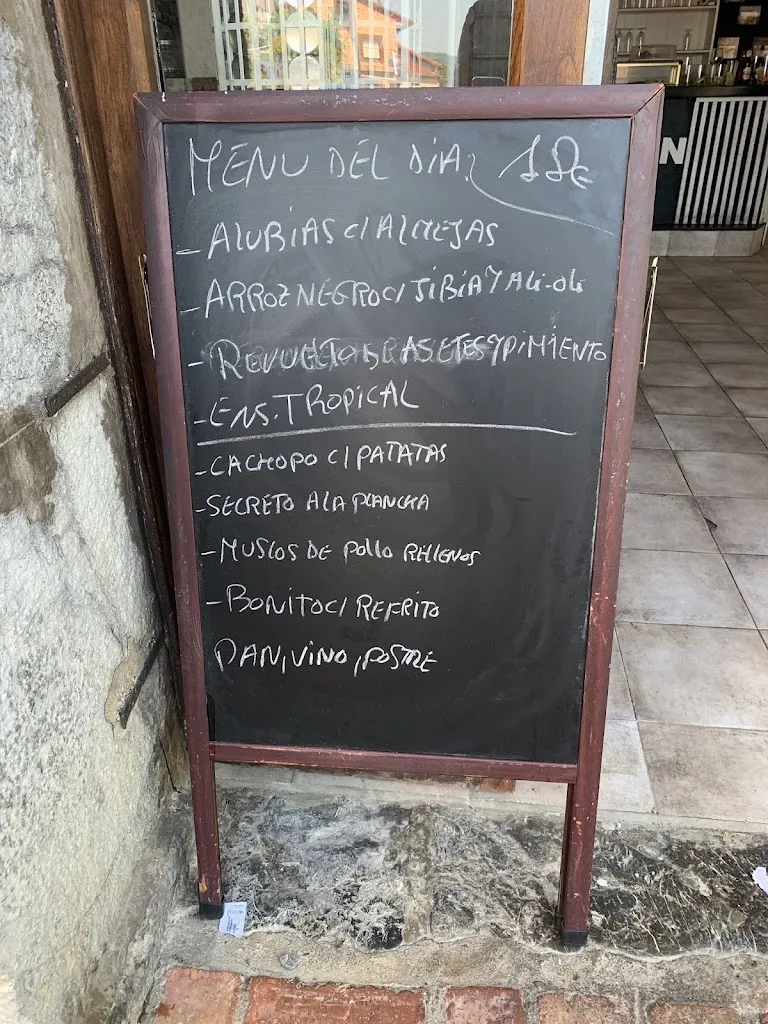 MENU DEL DIA. 12€
- ALUBIAS C/ ALMEJAS
- ARROZ NEGRO C/ JIBIA Y ALI-OLI
- REVUELTO, SETES Y PIMIENTO
- ENS. TROPICAL
- CACHOPO C/ PATATAS
- SECRETO A LA PLANCHA
- MUSLOS DE POLLO RELLENOS
- BONITO C/ REFRITO
PAN, VINO, POSTRE
N